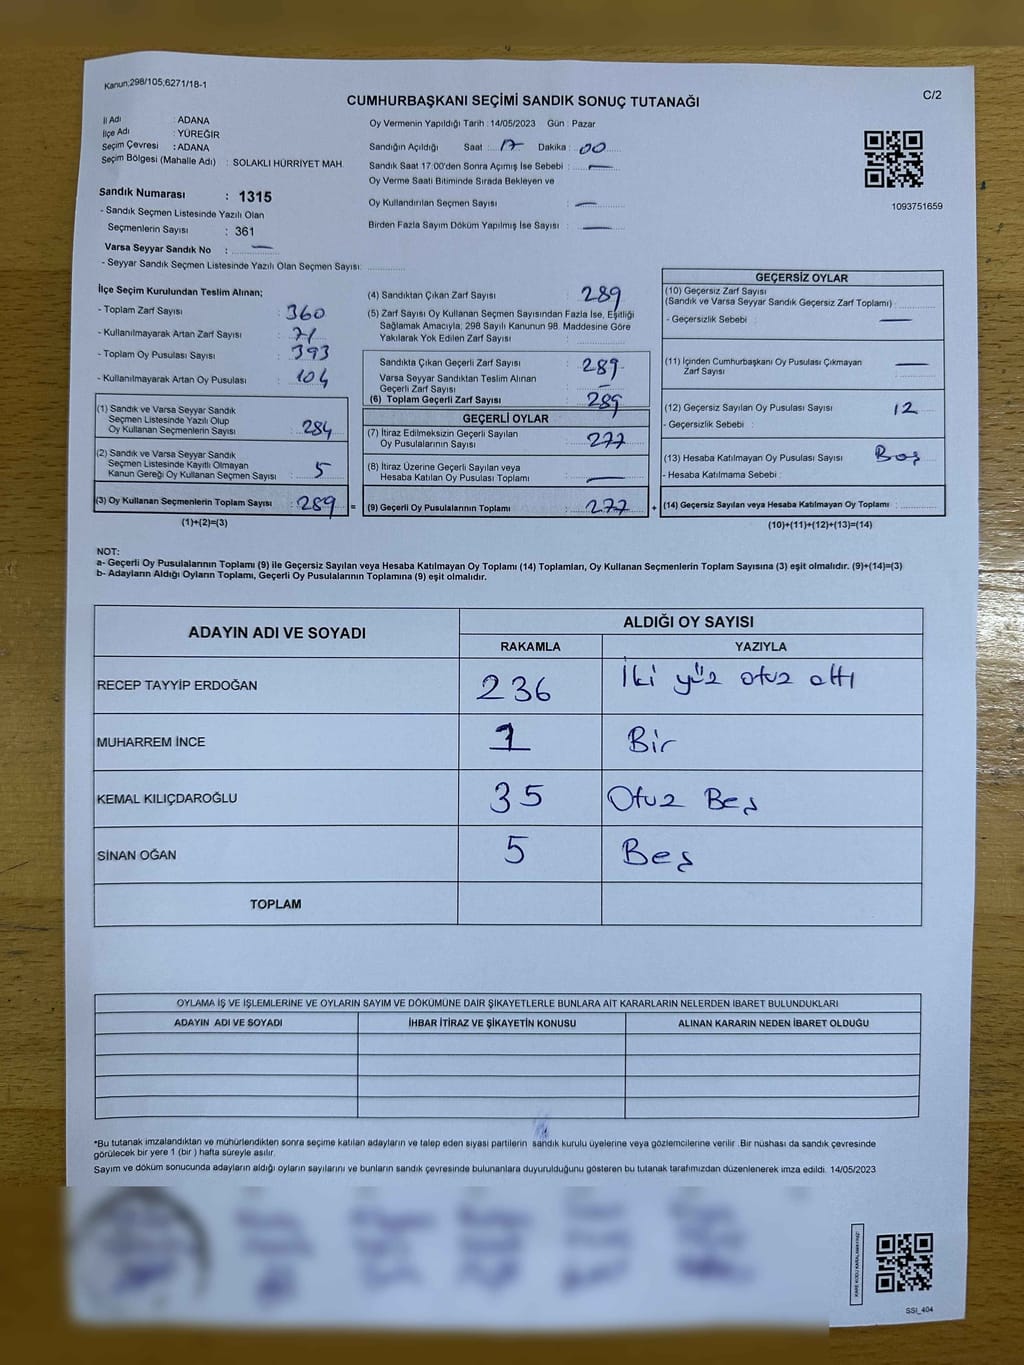 Kanun;298/105,6271/18-1
C/2
CUMHURBAŞKANI SEÇİMİ SANDIK SONUÇ TUTANAĞI
İl Adı : ADANA
İlçe Adı : YÜREĞİR
Seçim Çevresi : ADANA
Seçim Bölgesi (Mahalle Adı) : SOLAKLI HÜRRİYET MAH.
Oy Vermenin Yapıldığı Tarih : 14/05/2023 Gün : Pazar
Sandığın Açıldığı Saat : 17 Dakika : 00
Sandık Saat 17:00'den Sonra Açımış İse Sebebi : —
Oy Verme Saati Bitiminde Sırada Bekleyen ve
Oy Kullandırılan Seçmen Sayısı : —
Birden Fazla Sayım Döküm Yapılmış İse Sayısı : —
1093751659
Sandık Numarası : 1315
- Sandık Seçmen Listesinde Yazılı Olan
Seçmenlerin Sayısı : 361
Varsa Seyyar Sandık No : —
- Seyyar Sandık Seçmen Listesinde Yazılı Olan Seçmen Sayısı:
İlçe Seçim Kurulundan Teslim Alınan;
- Toplam Zarf Sayısı : 360
- Kullanılmayarak Artan Zarf Sayısı : 71
- Toplam Oy Pusulası Sayısı : 393
- Kullanılmayarak Artan Oy Pusulası : 104
(1) Sandık ve Varsa Seyyar Sandık
Seçmen Listesinde Yazılı Olup
Oy Kullanan Seçmenlerin Sayısı : 284
(2) Sandık ve Varsa Seyyar Sandık
Seçmen Listesinde Kayıtlı Olmayan
Kanun Gereği Oy Kullanan Seçmen Sayısı : 5
(3) Oy Kullanan Seçmenlerin Toplam Sayısı : 289 =
(1)+(2)=(3)
(4) Sandıktan Çıkan Zarf Sayısı : 289
(5) Zarf Sayısı Oy Kullanan Seçmen Sayısından Fazla İse, Eşitliği
Sağlamak Amacıyla, 298 Sayılı Kanunun 98. Maddesine Göre
Yakılarak Yok Edilen Zarf Sayısı :
Sandıkta Çıkan Geçerli Zarf Sayısı : 289
Varsa Seyyar Sandıktan Teslim Alınan
Geçerli Zarf Sayısı : —
(6) Toplam Geçerli Zarf Sayısı : 289
GEÇERLİ OYLAR
(7) İtiraz Edilmeksizin Geçerli Sayılan
Oy Pusulalarının Sayısı : 277
(8) İtiraz Üzerine Geçerli Sayılan veya
Hesaba Katılan Oy Pusulası Toplamı : —
(9) Geçerli Oy Pusulalarının Toplamı : 277 +
GEÇERSİZ OYLAR
(10) Geçersiz Zarf Sayısı
(Sandık ve Varsa Seyyar Sandık Geçersiz Zarf Toplamı) :
- Geçersizlik Sebebi : —
(11) İçinden Cumhurbaşkanı Oy Pusulası Çıkmayan
Zarf Sayısı : —
(12) Geçersiz Sayılan Oy Pusulası Sayısı : 12
- Geçersizlik Sebebi :
(13) Hesaba Katılmayan Oy Pusulası Sayısı : Boş
- Hesaba Katılmama Sebebi :
(14) Geçersiz Sayılan veya Hesaba Katılmayan Oy Toplamı :
(10)+(11)+(12)+(13)=(14)
NOT:
a- Geçerli Oy Pusulalarının Toplamı (9) ile Geçersiz Sayılan veya Hesaba Katılmayan Oy Toplamı (14) Toplamları, Oy Kullanan Seçmenlerin Toplam Sayısına (3) eşit olmalıdır. (9)+(14)=(3)
b- Adayların Aldığı Oyların Toplamı, Geçerli Oy Pusulalarının Toplamına (9) eşit olmalıdır.
ADAYIN ADI VE SOYADI ALDIĞI OY SAYISI
RAKAMLA YAZIYLA
RECEP TAYYİP ERDOĞAN 236 İki yüz otuz altı
MUHARREM İNCE 1 Bir
KEMAL KILIÇDAROĞLU 35 Otuz Beş
SİNAN OĞAN 5 Beş
TOPLAM
OYLAMA İŞ VE İŞLEMLERİNE VE OYLARIN SAYIM VE DÖKÜMÜNE DAİR ŞİKAYETLERLE BUNLARA AİT KARARLARIN NELERDEN İBARET BULUNDUKLARI
ADAYIN ADI VE SOYADI İHBAR İTİRAZ VE ŞİKAYETİN KONUSU ALINAN KARARIN NEDEN İBARET OLDUĞU
*Bu tutanak imzalandıktan ve mühürlendikten sonra seçime katılan adayların ve talep eden siyasi partilerin sandık kurulu üyelerine veya gözlemcilerine verilir .Bir nüshası da sandık çevresinde
görülecek bir yere 1 (bir ) hafta süreyle asılır.
Sayım ve döküm sonucunda adayların aldığı oyların sayılarını ve bunların sandık çevresinde bulunanlara duyurulduğunu gösteren bu tutanak tarafımızdan düzenlenerek imza edildi. 14/05/2023
SSI_404